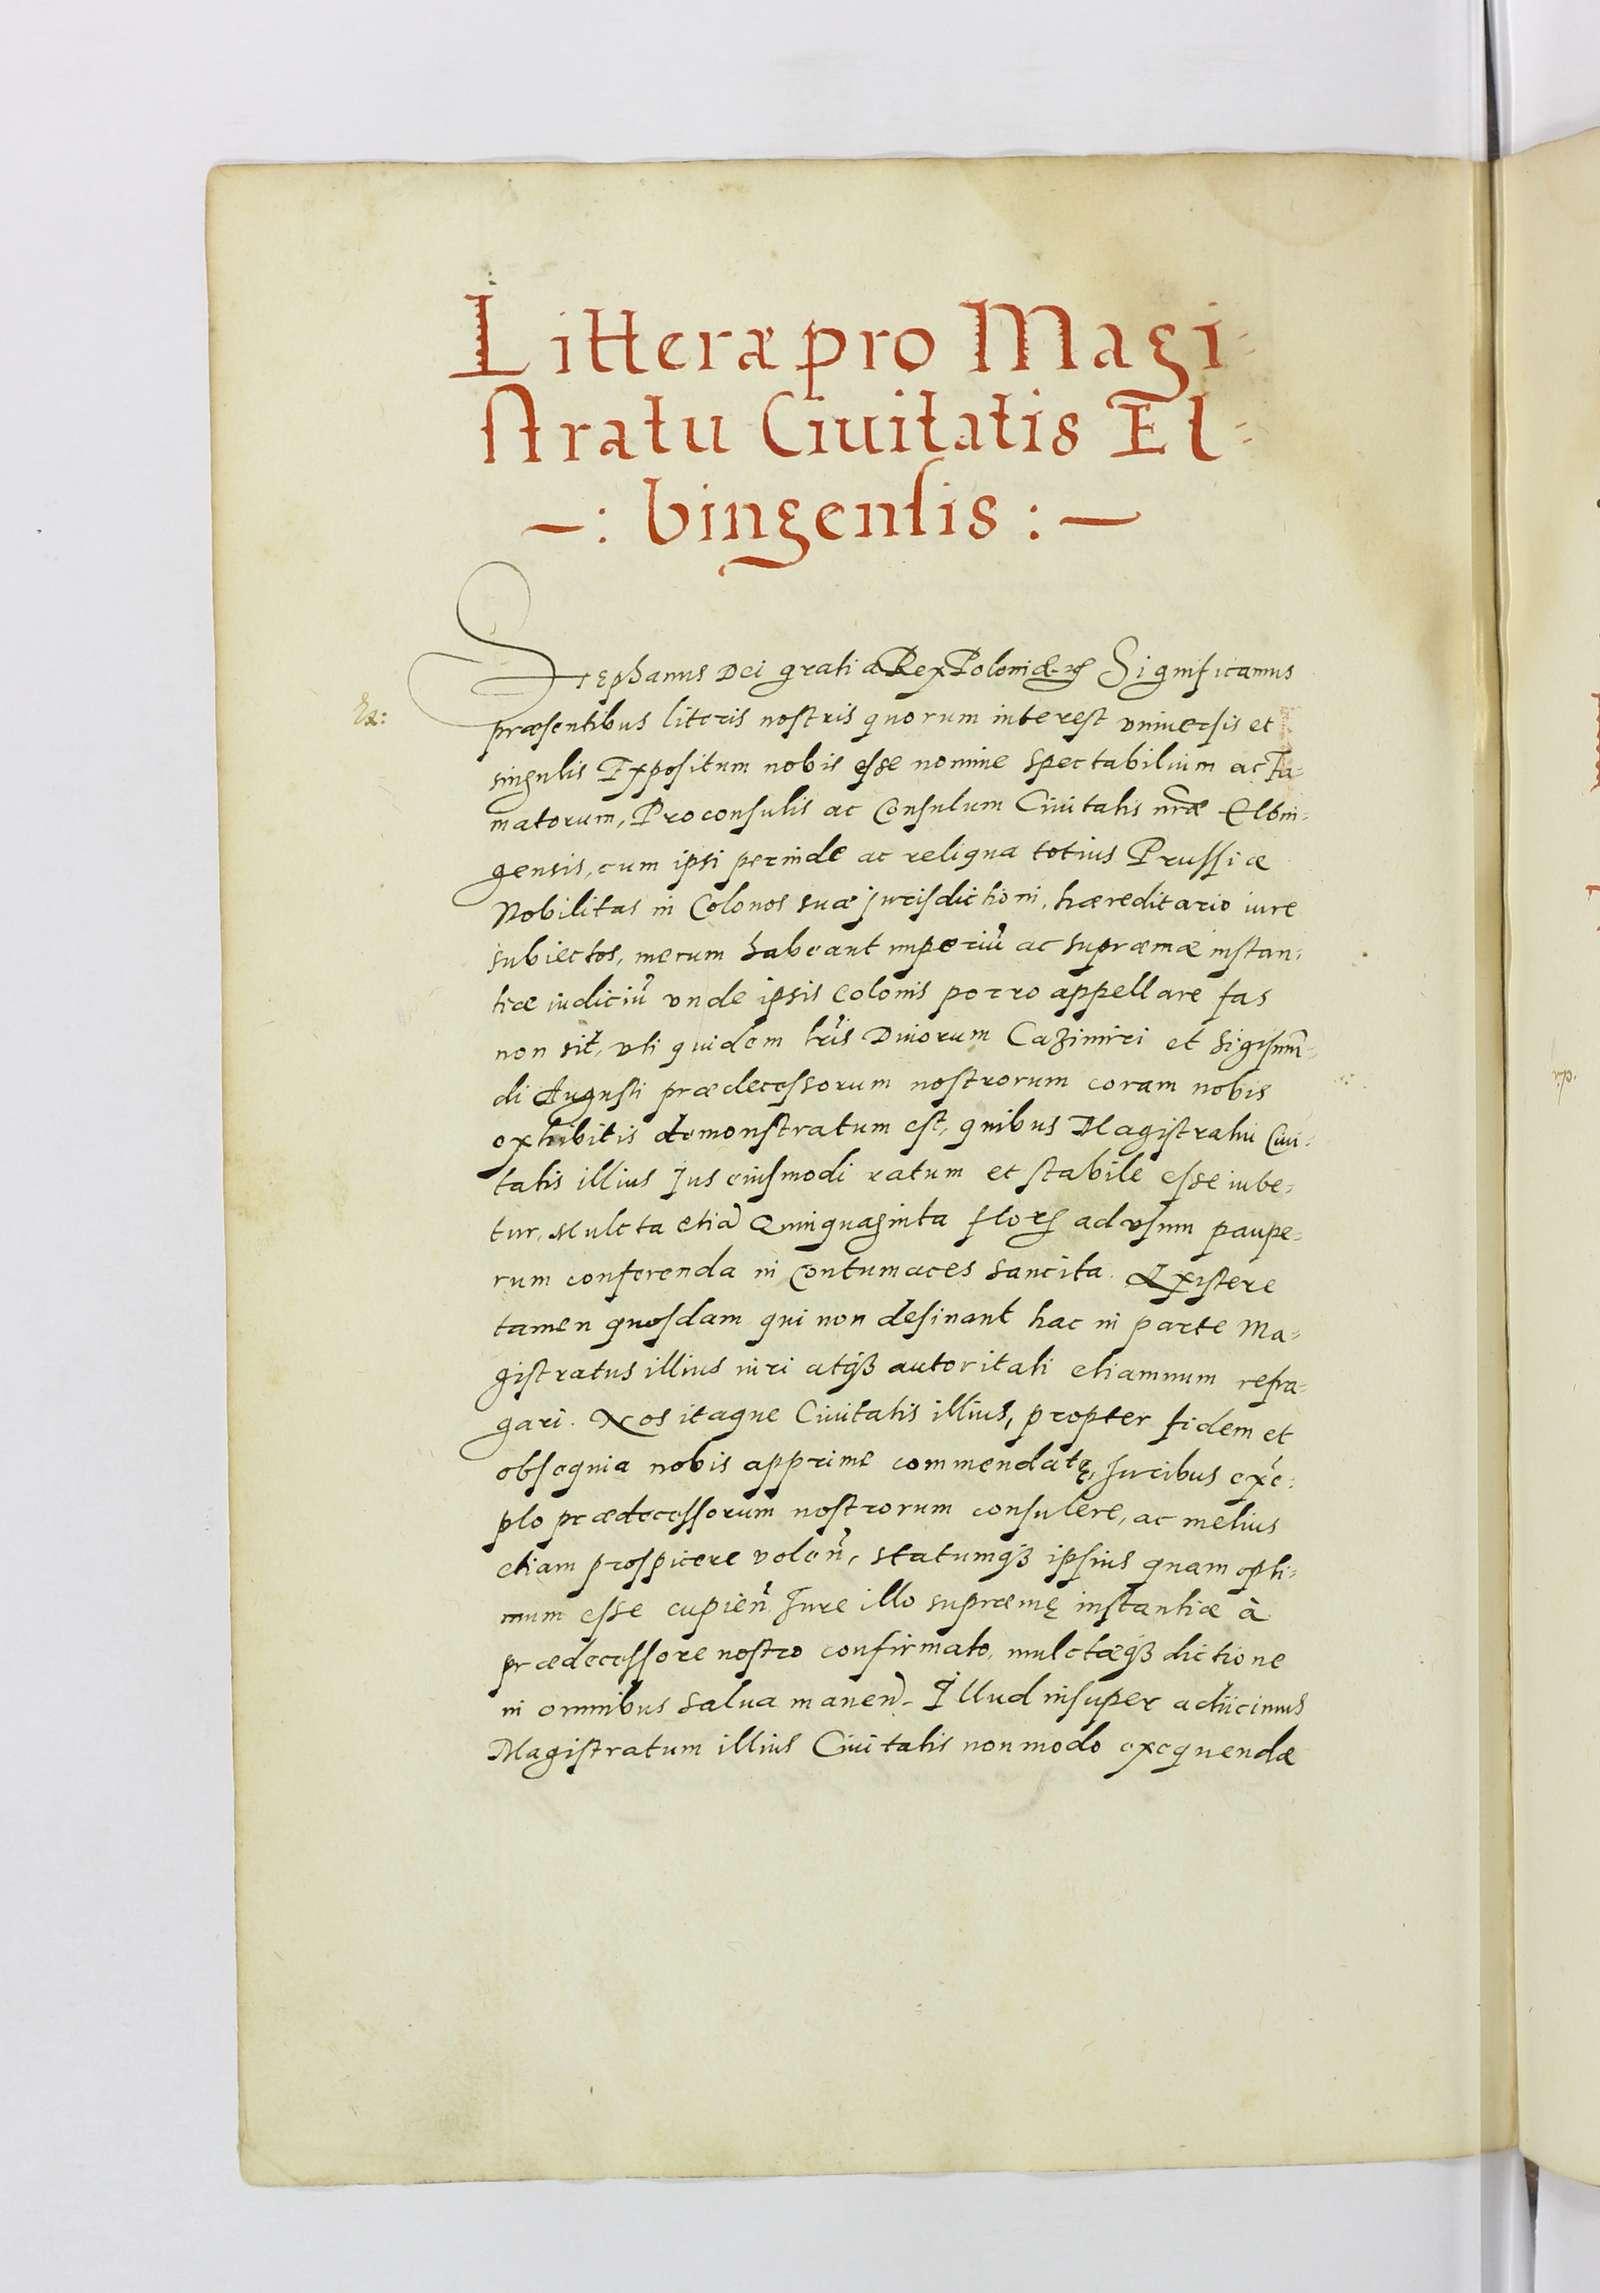 Litteræ pro Magi-
stratu Ciuitatis El-
-: bingensis :-
Stephanus Dei gratia Rex Poloniæ Significamus
præsentibus literis nostris quorum interest vniuersis et
singulis Expositum nobis esse nomine spectabilium ac Fa-
matorum, Proconsulis ac Consulum Ciuitatis nr̃æ Elbin-
gensis, cum ipsi perinde ac reliqua totius Prussiæ
Nobilitas in Colonos suæ jurisdictioni, hæreditario iure
subiectos, merum habeant imperiũ ac supræmæ instan-
tiæ iudiciũ vnde ipsis Colonis porro appellare fas
non sit, vti quidem lr̃is Diuorum Cazimiri et Sigismũ-
di Augusti prædecessorum nostrorum coram nobis
exhibitis demonstratum est, quibus Magistratui Ciui-
tatis illius Jus eiusmodi ratum et stabile esse iube-
tur, Mulcta etiã Quinquaginta flor ad vsum paupe-
rum conferenda in Contumaces sancita. Existere
tamen quosdam qui non desinant hac in parte Ma-
gistratus illius iuri atqȝ autoritati etiamnum refra-
gari. Nos itaque Ciuitatis illius, propter fidem et
obsequia nobis apprime commendatę, Juribus exẽ-
plo prædecessorum nostrorum consulere, ac melius
etiam prospicere volen̄, statumqȝ ipsius quam opti-
mum esse cupien̄ Jure illo supræmę instantiæ à
prædecessore nostro confirmato, mulctæqȝ dictione
in omnibus salua manen̄. Illud insuper adiicimus
Magistratum illius Ciuitatis non modo exequendæ